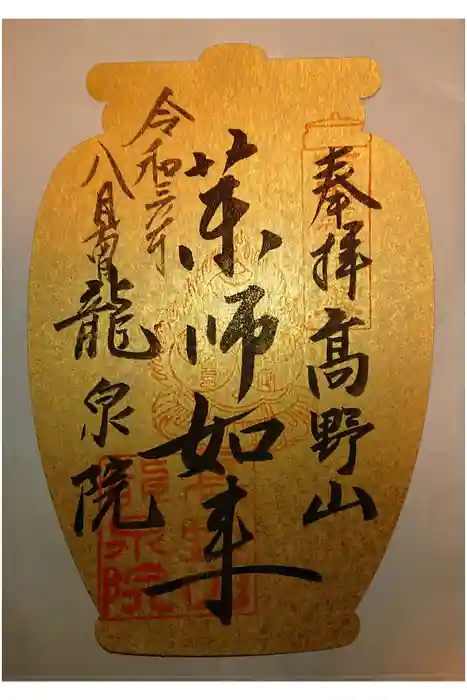 奉拝 高野山
薬師如来
令和三年
八月
龍泉院